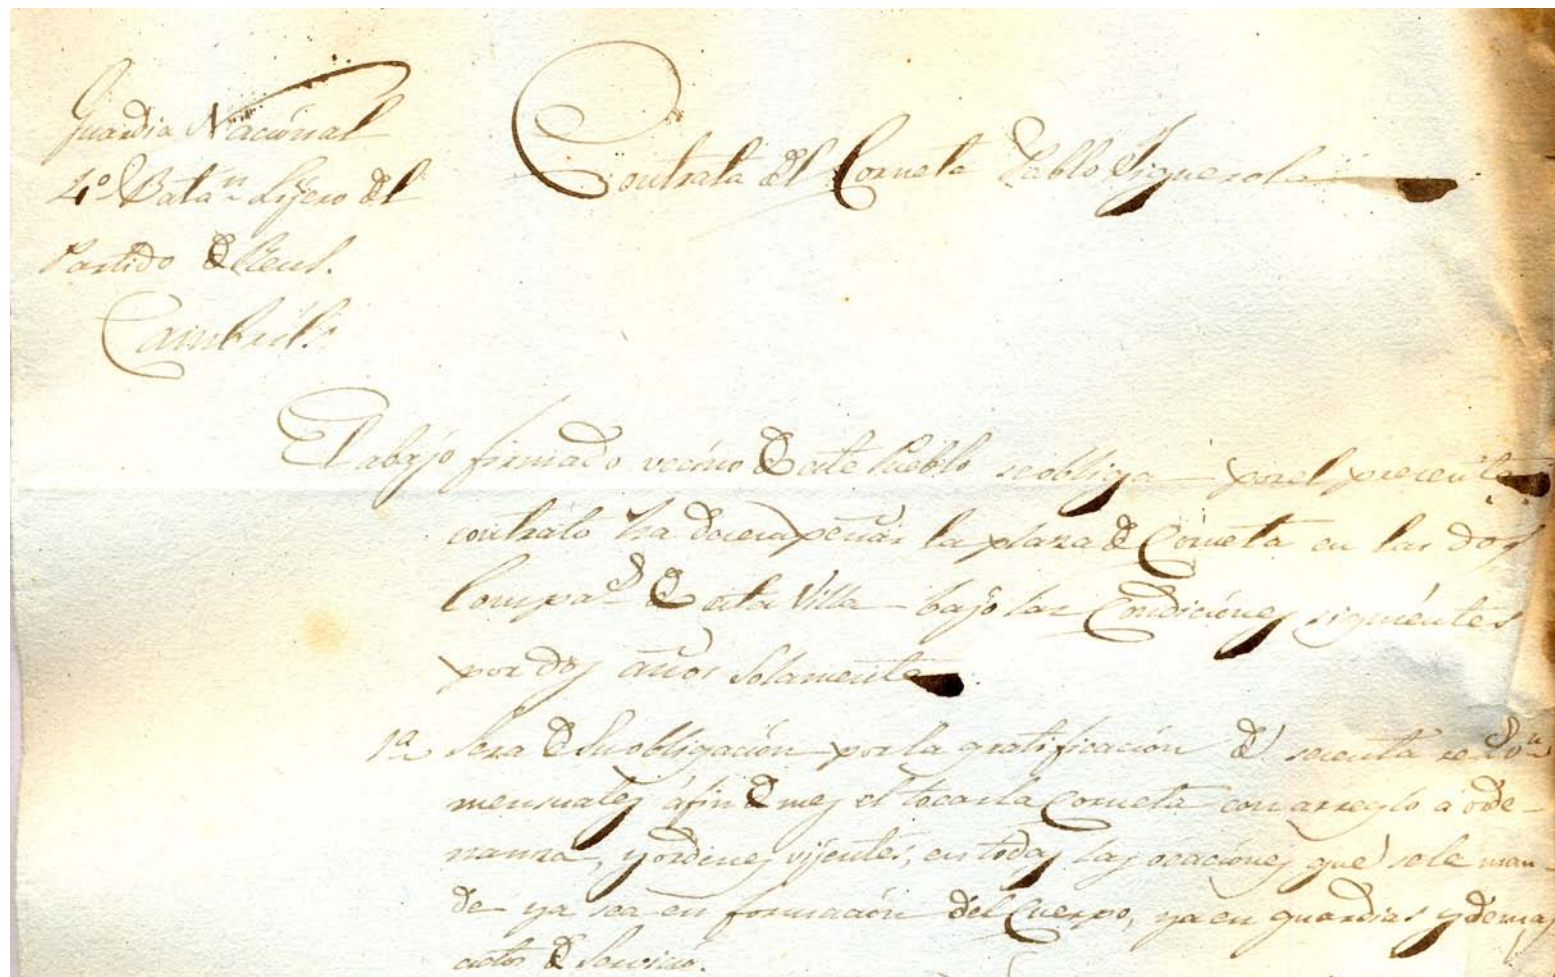 Guardia Nacional
4º Batan. Lijero del
Partido de Reus.
Cambrils
Contrata del Corneta Pablo Figuerola
El abajo firmado vecino de este Pueblo se obliga por el presente
contrato ha decempeñar la plaza de Corneta en las dos
Compas. de esta Villa bajo las Condiciones siguientes
por dos años Solamente.
1a Sera de su obligación por la gratificación de secenta rs.
mensuales á fin de mes el tocar la Corneta con arreglo á orde-
nanza, y ordenes vijentes, en todas las ocaciones que se le man-
de ya sea en formación del Cuerpo, ya en guardias y demas
actos de Servicio.